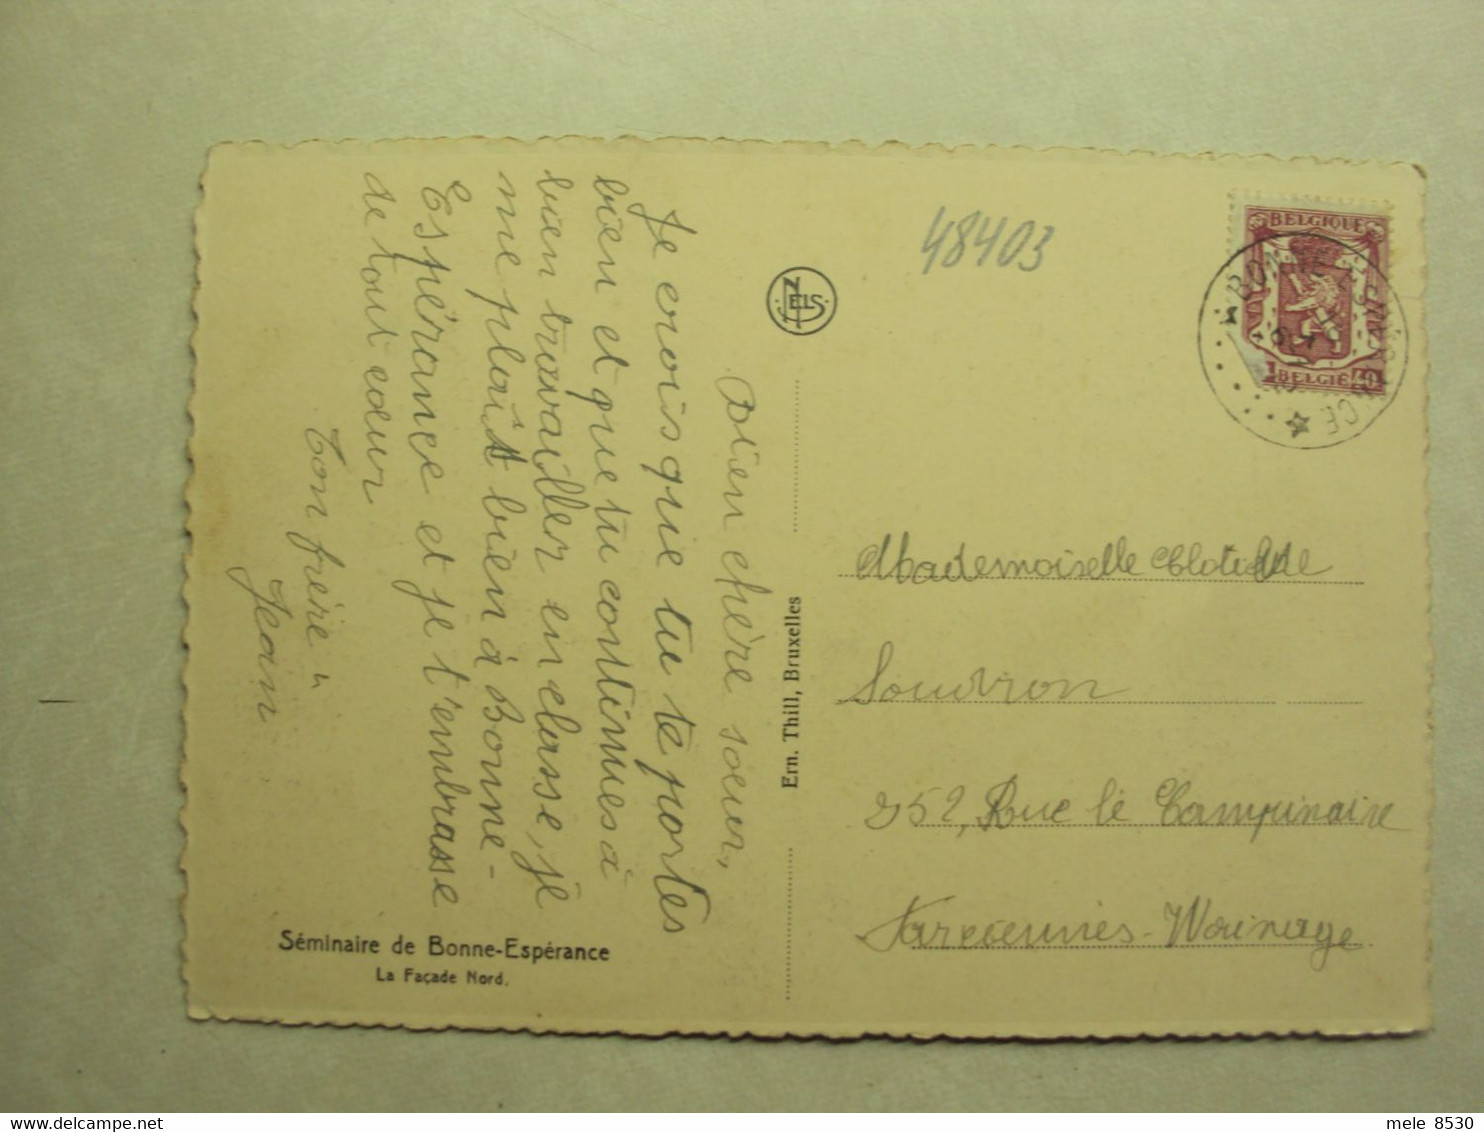 Bien chère sœur,
Je crois que tu te portes
bien et que tu continues à
bien travailler en classe, je
me plaît bien à Bonne-
Espérance et je t'embrasse
de tout cœur
Ton frère
Jean
Séminaire de Bonne-Espérance
La Façade Nord.
NELS
Ern. Thill, Bruxelles
48403
BELGIQUE
BELGIË
40
BONNE ESPERANCE
Mademoiselle Clotilde
Soudron
252, Rue le Campinaire
Farciennes-Wainage
mele 8530